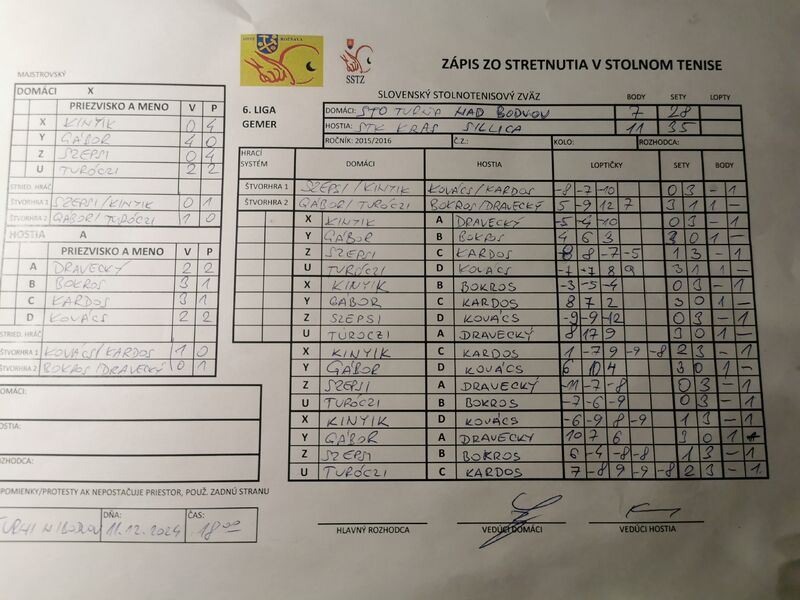 ZÁPIS ZO STRETNUTIA V STOLNOM TENISE
SSTZ
SLOVENSKÝ STOLNOTENISOVÝ ZVÄZ BODY SETY LOPTY
6. LIGA
GEMER
DOMÁCI: STO TURŇA NAD BODVOU 7 28
HOSTIA: STK KRAS SILICA 11 35
ROČNÍK: 2015/2016 Č.Z.: KOLO: ROZHODCA:
MAJSTROVSKÝ
DOMÁCI X
PRIEZVISKO A MENO V P
X KINYIK 0 4
Y GÁBOR 4 0
Z SZEPSI 0 4
U TURÓCZI 2 2
STRIED. HRÁČ
ŠTVORHRA 1 SZEPSI/KINYIK 0 1
ŠTVORHRA 2 GÁBOR/TURÓCZI 1 0
HOSTIA A
PRIEZVISKO A MENO V P
A DRAVECKÝ 2 2
B BOKROS 3 1
C KARDOS 3 1
D KOVÁCS 2 2
STRIED. HRÁČ
ŠTVORHRA 1 KOVÁCS/KARDOS 1 0
ŠTVORHRA 2 BOKROS/DRAVECKÝ 0 1
DOMÁCI:
HOSTIA:
ROZHODCA:
POMIENKY/PROTESTY AK NEPOSTAČUJE PRIESTOR, POUŽ. ZADNÚ STRANU
DŇA: 11.12.2024 ČAS: 18:00
HRACÍ SYSTÉM DOMÁCI HOSTIA LOPTIČKY SETY BODY
ŠTVORHRA 1 SZEPSI/KINYIK KOVÁCS/KARDOS -8 -7 -10 0 3 - 1
ŠTVORHRA 2 GÁBOR/TURÓCZI BOKROS/DRAVECKÝ 5 -9 12 7 3 1 1 -
X KINYIK A DRAVECKÝ -5 -4 -10 0 3 - 1
Y GÁBOR B BOKROS 4 6 3 3 0 1 -
Z SZEPSI C KARDOS 8 -7 -5 1 3 - 1
U TURÓCZI D KOVÁCS -7 8 9 3 1 1 -
X KINYIK B BOKROS -3 -5 -4 0 3 - 1
Y GÁBOR C KARDOS 8 7 2 3 0 1 -
Z SZEPSI D KOVÁCS -9 -9 -12 0 3 - 1
U TURÓCZI A DRAVECKÝ 8 17 9 3 0 1 -
X KINYIK C KARDOS 1 -7 9 -9 -8 2 3 - 1
Y GÁBOR D KOVÁCS 6 10 4 3 0 1 -
Z SZEPSI A DRAVECKÝ -11 -7 -8 0 3 - 1
U TURÓCZI B BOKROS -7 -6 -9 0 3 - 1
X KINYIK D KOVÁCS -6 -9 8 -9 1 3 - 1
Y GÁBOR A DRAVECKÝ 10 7 6 3 0 1
Z SZEPSI B BOKROS 6 -4 -8 -8 1 3 - 1
U TURÓCZI C KARDOS 7 -8 9 -9 -8 2 3 - 1
HLAVNÝ ROZHODCA VEDÚCI DOMÁCI VEDÚCI HOSTIA